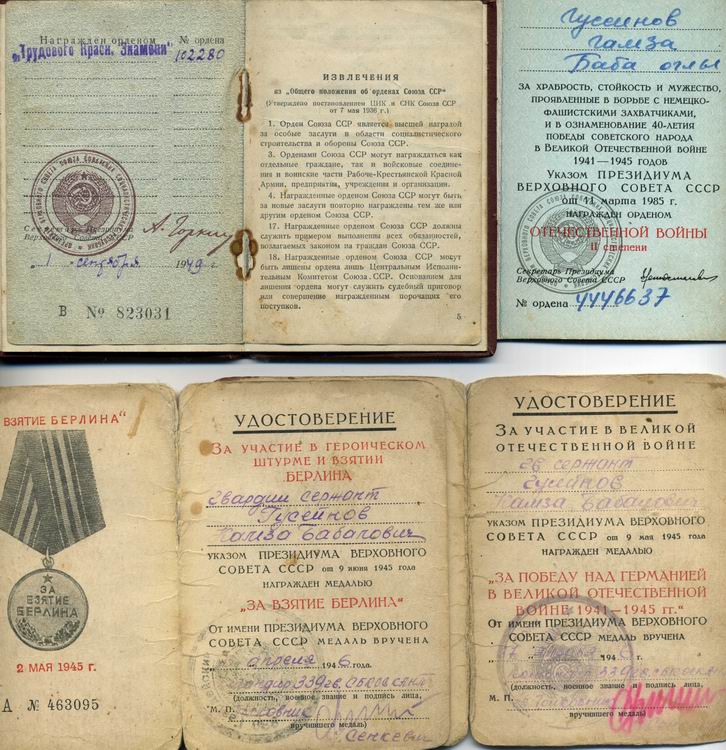 Награжден орденом № ордена
„Трудового Красн. Знамени" 102280
Секретарь Президиума
Верховного Совета СССР
А. Горкин
„1" сентября 1949 г.
В № 823031
ИЗВЛЕЧЕНИЯ
из „Общего положения об орденах Союза ССР"
(Утверждено постановлением ЦИК и СНК Союза ССР
от 7 мая 1936 г.)
1. Орден Союза ССР является высшей наградой
за особые заслуги в области социалистического
строительства и обороны Союза ССР.
3. Орденами Союза ССР могут награждаться как
отдельные граждане, так и войсковые соедине-
ния и воинские части Рабоче-Крестьянской Красной
Армии, предприятия, учреждения и организации.
4. Награжденные орденом Союза ССР могут быть
за новые заслуги повторно награждены тем же или
другим орденом Союза ССР.
17. Награжденные орденом Союза ССР должны
служить примером выполнения всех обязанностей,
возлагаемых законом на граждан Союза ССР.
18. Награжденные орденом Союза ССР могут
быть лишены ордена лишь Центральным Исполни-
тельным Комитетом Союза ССР. Основанием для
лишения ордена могут служить судебный приговор
или совершение награжденным порочащих его
поступков.
5
Гуссейнов
Гамза
Баба оглы
ЗА ХРАБРОСТЬ, СТОЙКОСТЬ И МУЖЕСТВО,
ПРОЯВЛЕННЫЕ В БОРЬБЕ С НЕМЕЦКО-
ФАШИСТСКИМИ ЗАХВАТЧИКАМИ,
И В ОЗНАМЕНОВАНИЕ 40-ЛЕТИЯ
ПОБЕДЫ СОВЕТСКОГО НАРОДА
В ВЕЛИКОЙ ОТЕЧЕСТВЕННОЙ ВОЙНЕ
1941—1945 ГОДОВ
УКАЗОМ ПРЕЗИДИУМА
ВЕРХОВНОГО СОВЕТА СССР
от 11 марта 1985 г.
НАГРАЖДЕН ОРДЕНОМ
ОТЕЧЕСТВЕННОЙ ВОЙНЫ
II степени
Секретарь Президиума
Верховного Совета СССР
№ ордена 4446637
ВЗЯТИЕ БЕРЛИНА"
ЗА
ВЗЯТИЕ
БЕРЛИНА
2 МАЯ 1945 г.
А № 463095
УДОСТОВЕРЕНИЕ
ЗА УЧАСТИЕ В ГЕРОИЧЕСКОМ
ШТУРМЕ И ВЗЯТИИ
БЕРЛИНА
Гвардии сержант
Гусейнов
Гамза Бабаович
УКАЗОМ ПРЕЗИДИУМА ВЕРХОВНОГО
СОВЕТА СССР от 9 июня 1945 года
НАГРАЖДЕН МЕДАЛЬЮ
„ЗА ВЗЯТИЕ БЕРЛИНА"
ОТ ИМЕНИ ПРЕЗИДИУМА ВЕРХОВНОГО
СОВЕТА СССР МЕДАЛЬ ВРУЧЕНА
апреля 1946 года.
339 гв.
(должность, воинское звание и подпись лица,
М. П.
вручившего медаль)
Сенкевич
УДОСТОВЕРЕНИЕ
ЗА УЧАСТИЕ В ВЕЛИКОЙ
ОТЕЧЕСТВЕННОЙ ВОЙНЕ
гв сержант
Гусейнов
Гамза Бабаович
УКАЗОМ ПРЕЗИДИУМА ВЕРХОВНОГО
СОВЕТА СССР от 9 мая 1945 года
НАГРАЖДЕН МЕДАЛЬЮ
„ЗА ПОБЕДУ НАД ГЕРМАНИЕЙ
В ВЕЛИКОЙ ОТЕЧЕСТВЕННОЙ
ВОЙНЕ 1941—1945 гг."
ОТ ИМЕНИ ПРЕЗИДИУМА ВЕРХОВНОГО
СОВЕТА СССР МЕДАЛЬ ВРУЧЕНА
1946
339
(должность, воинское звание и подпись лица,
М. П.
вручившего медаль)